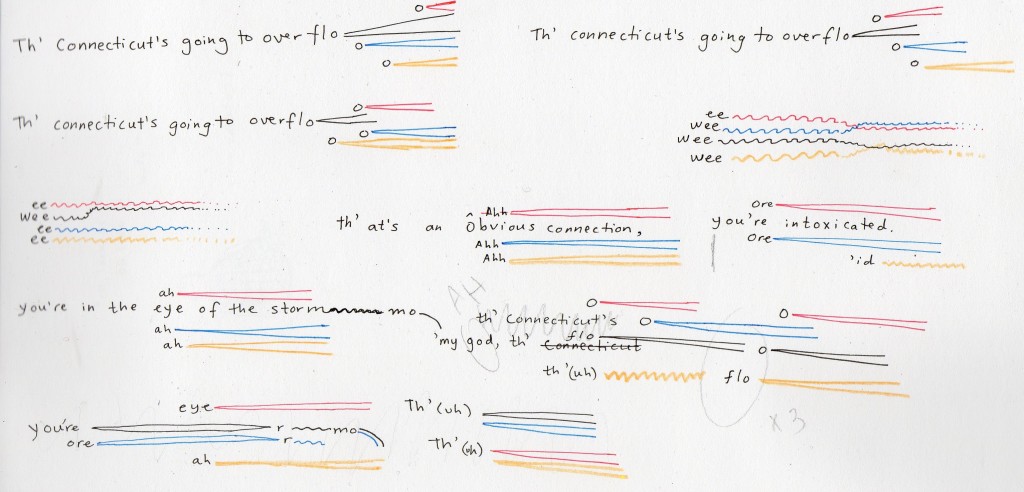 o
Th' Connecticut's going to over flo
o
o
o
Th' connecticut's going to overflo
o
o
o
Th' connecticut's going to overflo
o
o
ee
wee
wee
wee
ee
wee
ee
ee
Ahh
th' at's an ôbvious connection,
Ahh
Ahh
ore
you're intoxicated.
ore
'id
ah
you're in the eye of the storm mo
ah
ah
o
th' Connecticut's o
flo
'my god, th' Connecticut
th'(uh)
o
o
flo
AH
x3
eye
you're r mo
ore r
ah
Th'(uh)
Th'(uh)